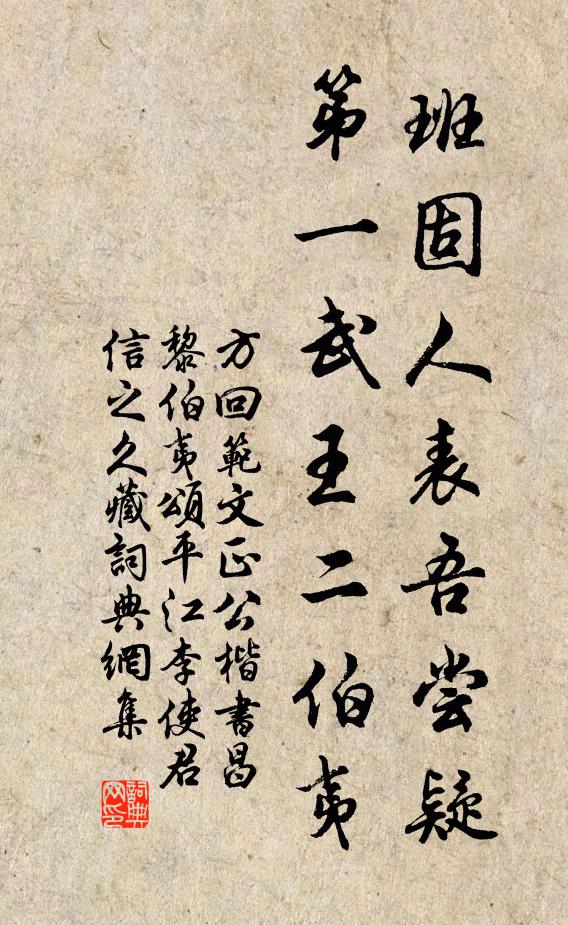 班固人表吾尝疑
第一武王二伯夷
方回範文正公楷書昌
黎伯夷頌平江李使君
信之久藏詞典網集
詞典
网印